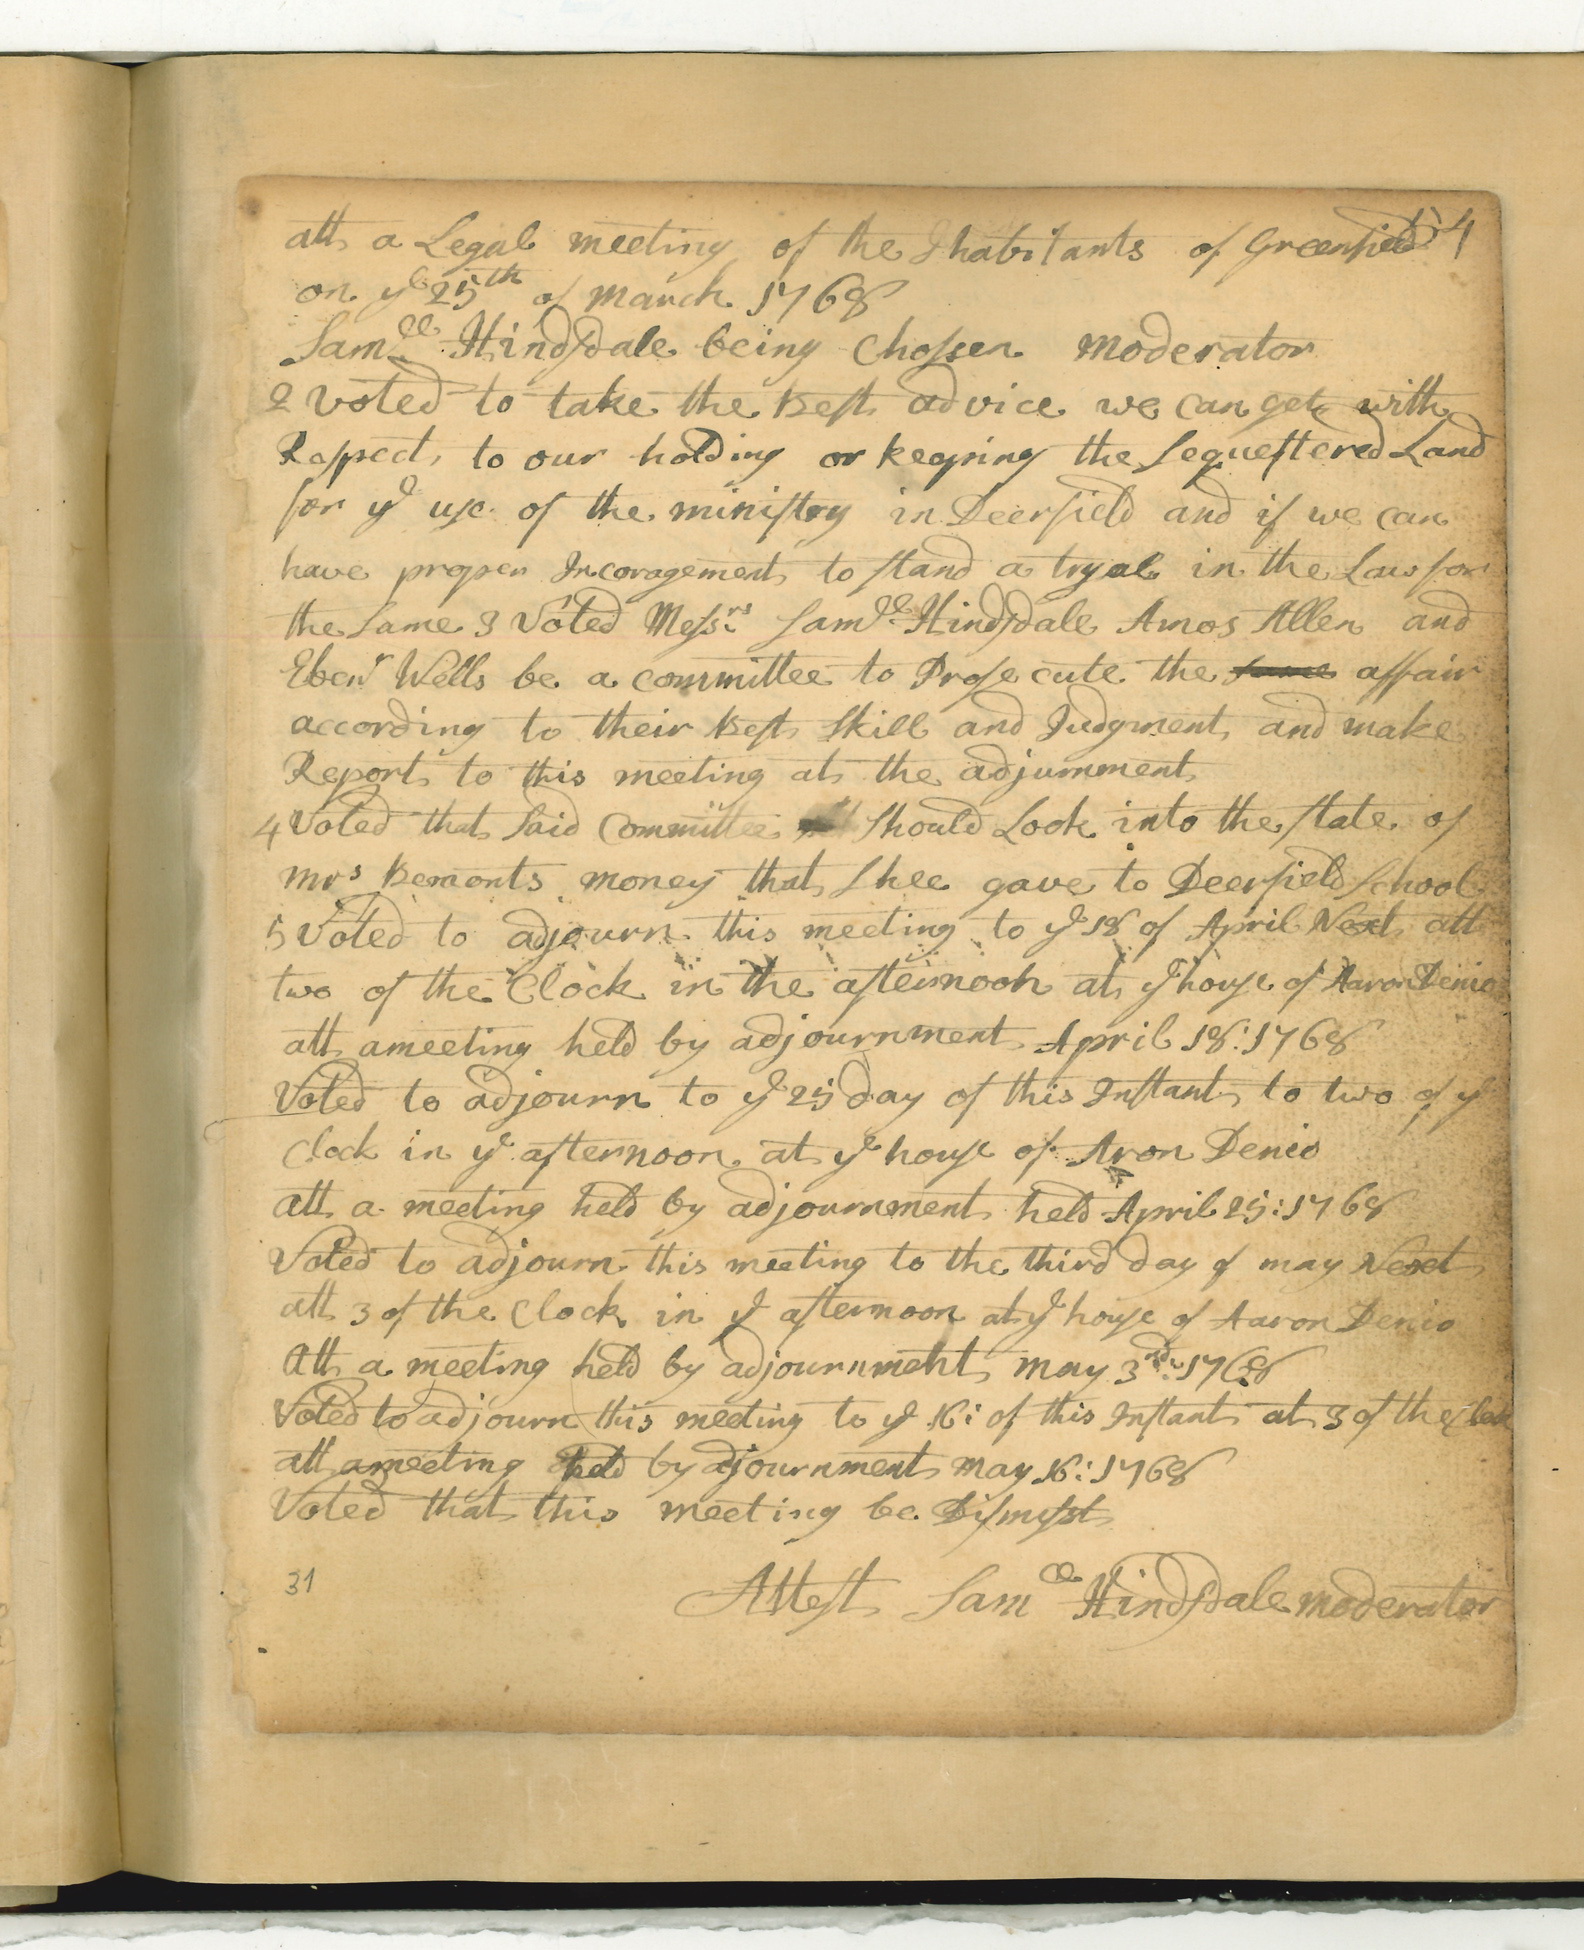 att a Legal meeting of the Ihabitants of Greenfield 14
on ye 25th of march 1768
Samll Hindsdale being Chosen moderator
2 Voted to take the Best advice we can get with
Respect to our holding or keeping the Sequestered Land
for ye use of the ministry in Deerfield and if we can
have proper Incoragement to stand a tryal in the Law for
the Same 3 Voted Messrs Samll Hindsdale Amos Allen and
Ebenr Wells be a committee to Prosecute the same affair
according to their Best Skill and Judgment and make
Report to this meeting at the adjurnment
4 Voted that Said Committee should Look into the state of
mrs Bemonts money that Shee gave to Deerfield School
5 Voted to adjourn this meeting to ye 18 of April Next att
two of the Clock in the afternoon at ye house of Aaron Denio
att ameeting held by adjournment April 18: 1768
Voted to adjourn to ye 25 day of this Instant to two of ye
Clock in ye afternoon at ye house of Aron Denio
att a meeting held by adjournment held April 25: 1768
Voted to adjourn this meeting to the third day of may Next
att 3 of the Clock in ye afternoon at ye house of Aaron Denio
Att a meeting held by adjournment may 3rd: 1768
Voted to adjourn this meeting to ye 16: of this Instant at 3 of the Clock
att ameeting held by adjournment may 16: 1768
Voted that this meeting be Dismist
31 Attest Samll Hindsdale moderator